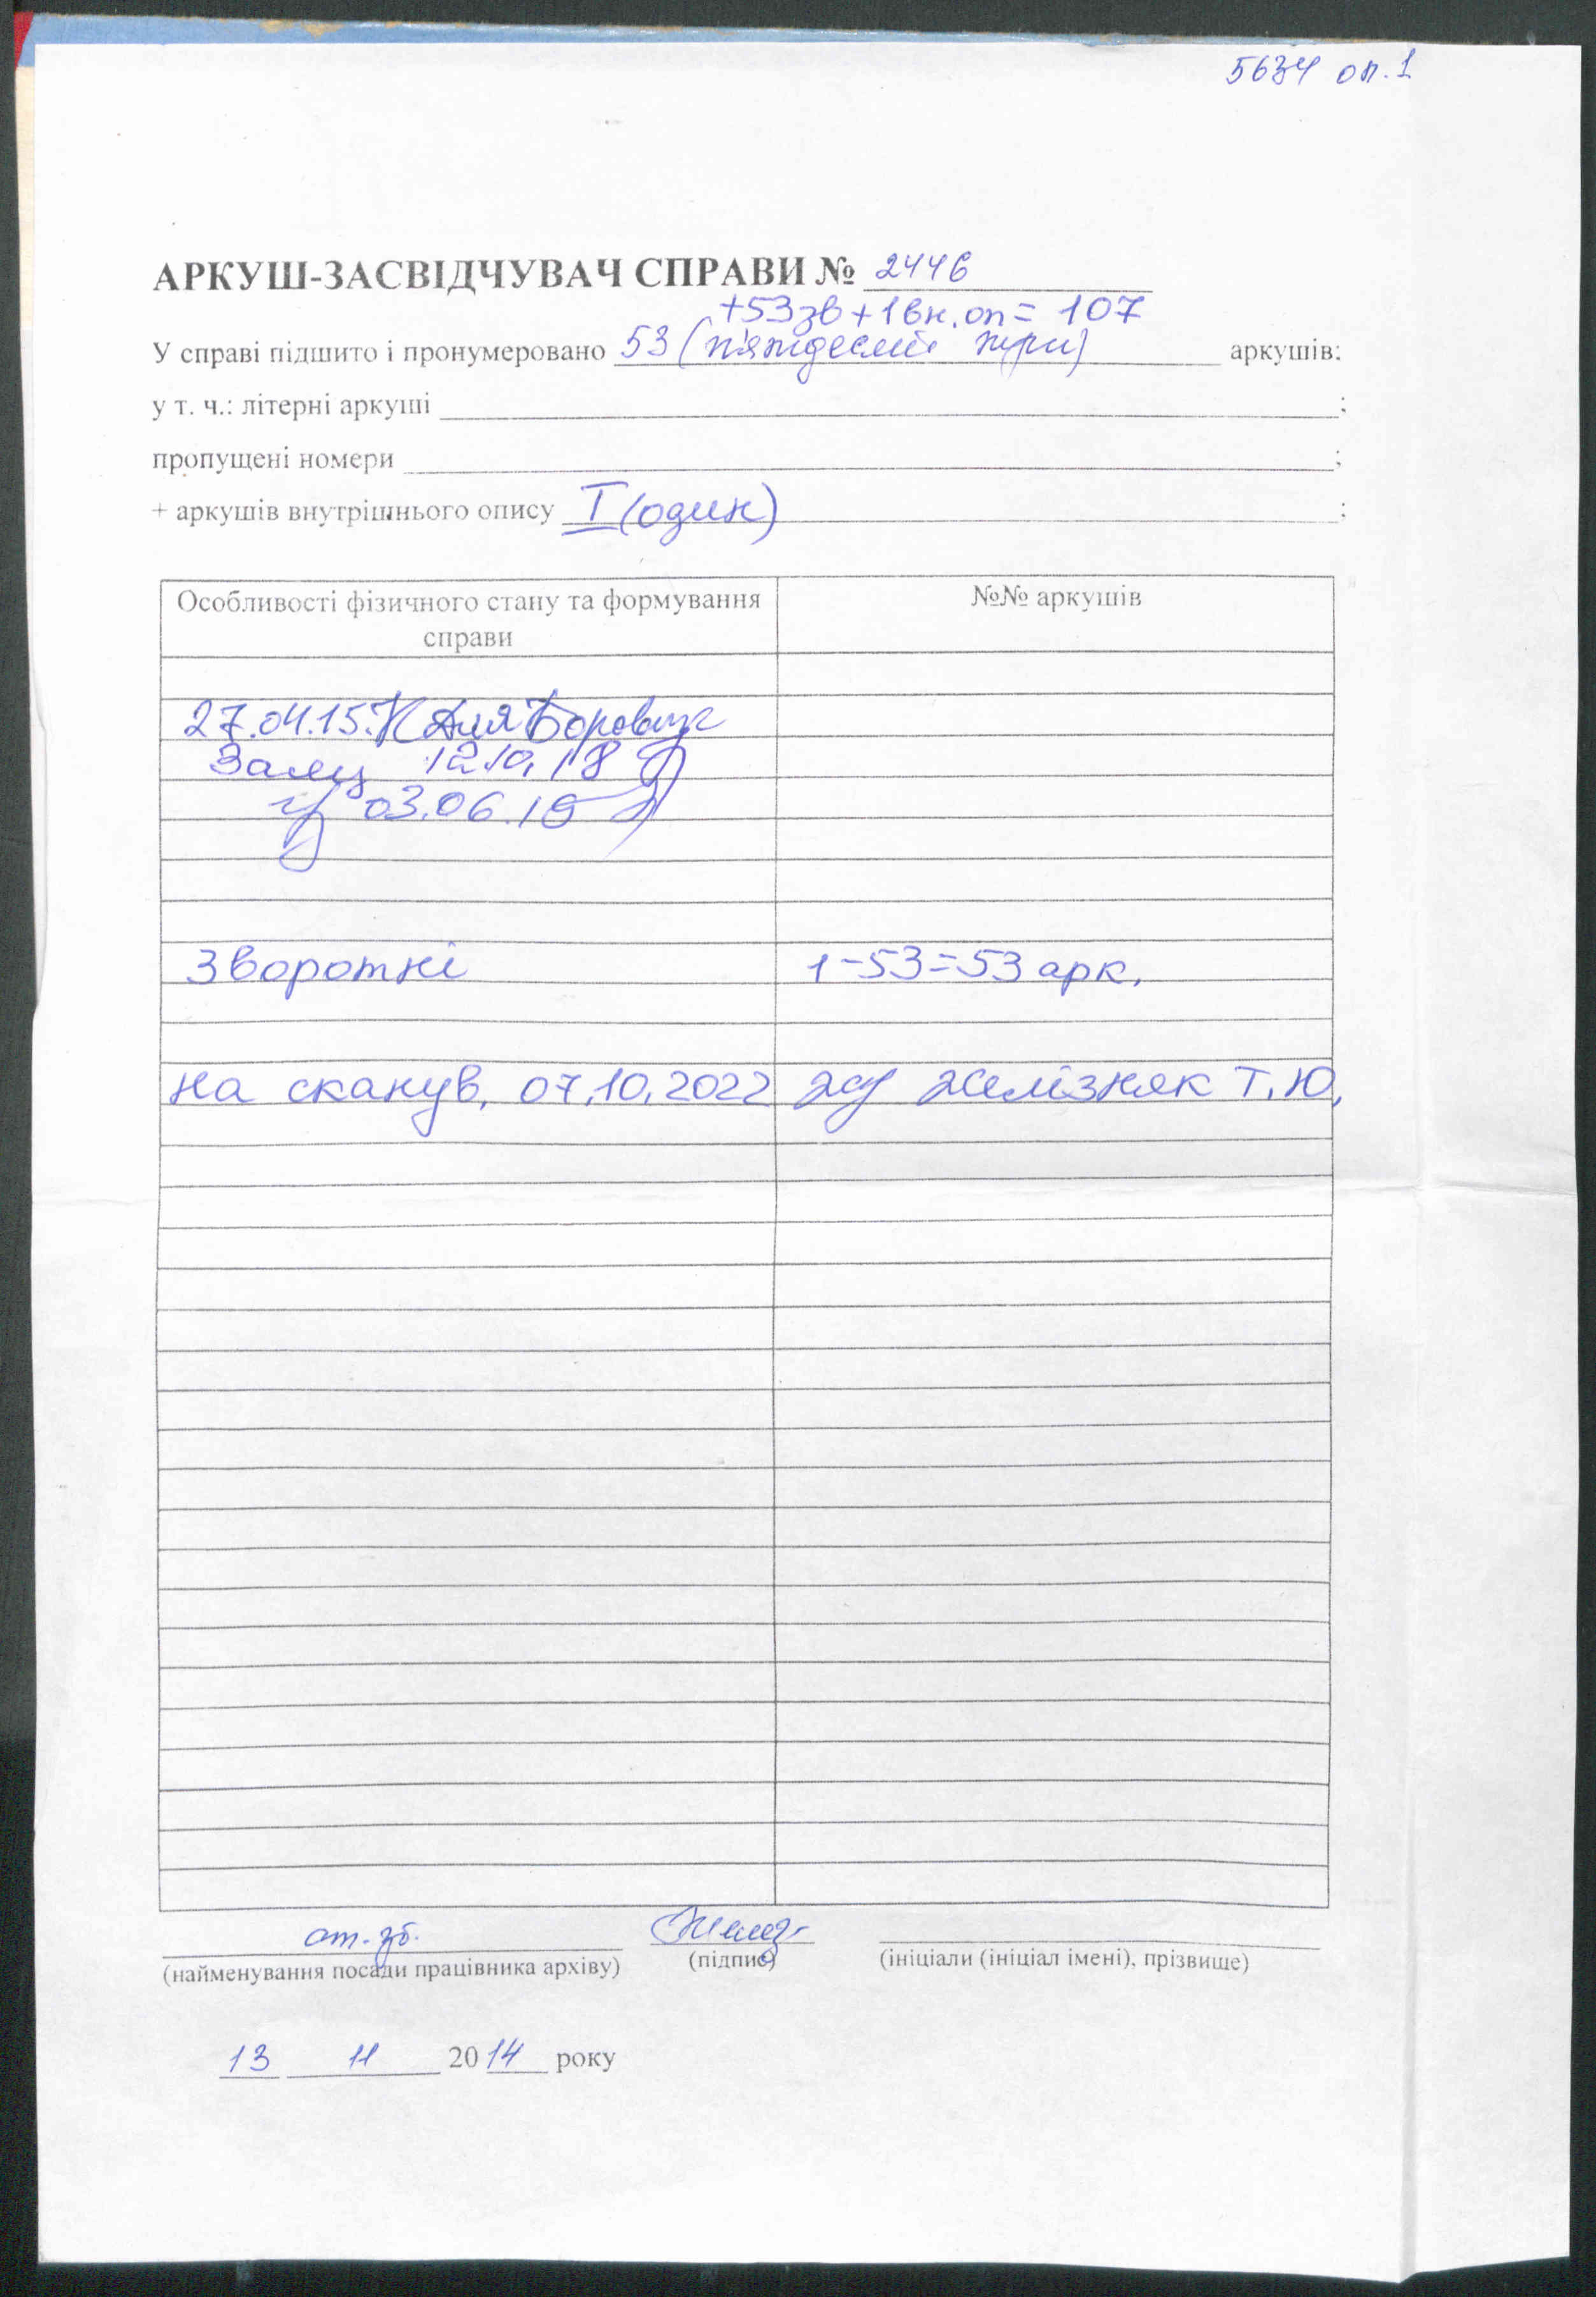 5634 оп. 1
АРКУШ-ЗАСВІДЧУВАЧ СПРАВИ № 2446
+53зв+1вн.оп= 107
У справі підшито і пронумеровано 53 (п'ятдесят три) аркушів:
у т. ч.: літерні аркуші ;
пропущені номери ;
+ аркушів внутрішнього опису I (один) ;
Особливості фізичного стану та формування справи
№№ аркушів
27.04.15.
12.10.18
03.06.19
Зворотні 1-53=53 арк.
на сканув. 07.10.2022 Желізняк Т.Ю.
(найменування посади працівника архіву) (підпис) (ініціали (ініціал імені), прізвище)
13 11 2014 року